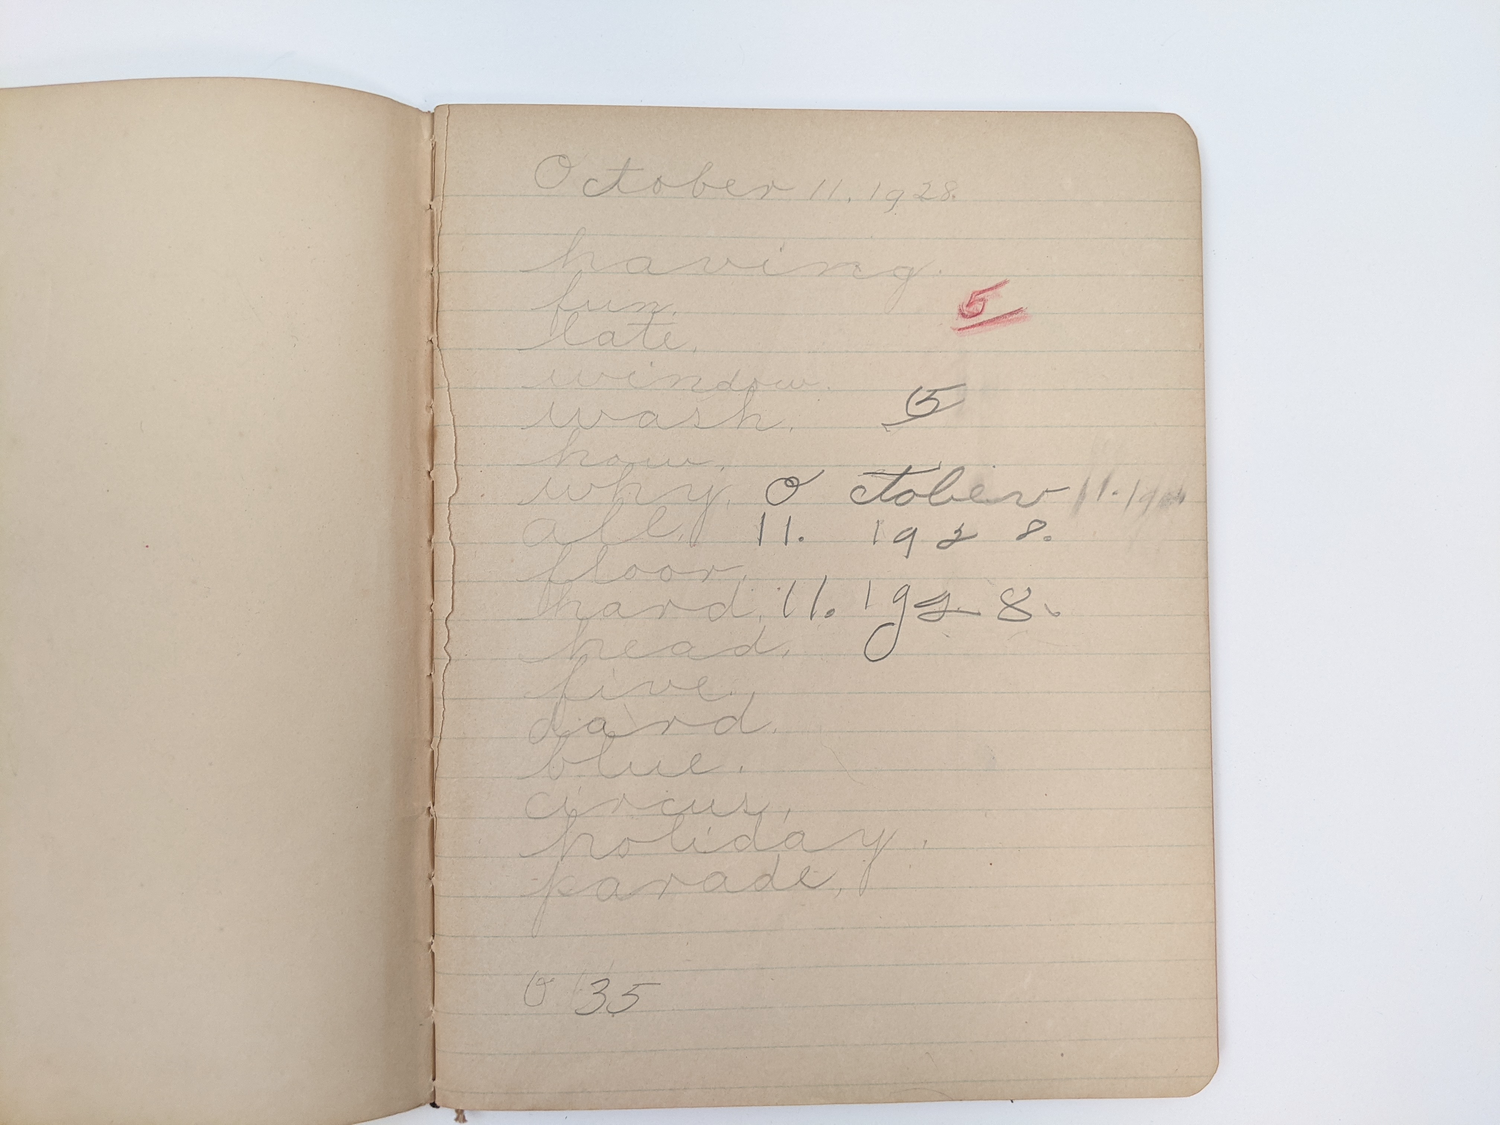 October 11. 1928.
having.
fun.
5
late.
window.
5
wash.
how.
why. October 11. 19
all. 11. 1928.
floor.
hard. 11. 1928.
head.
five.
card.
blue.
circus.
holiday.
parade.
35